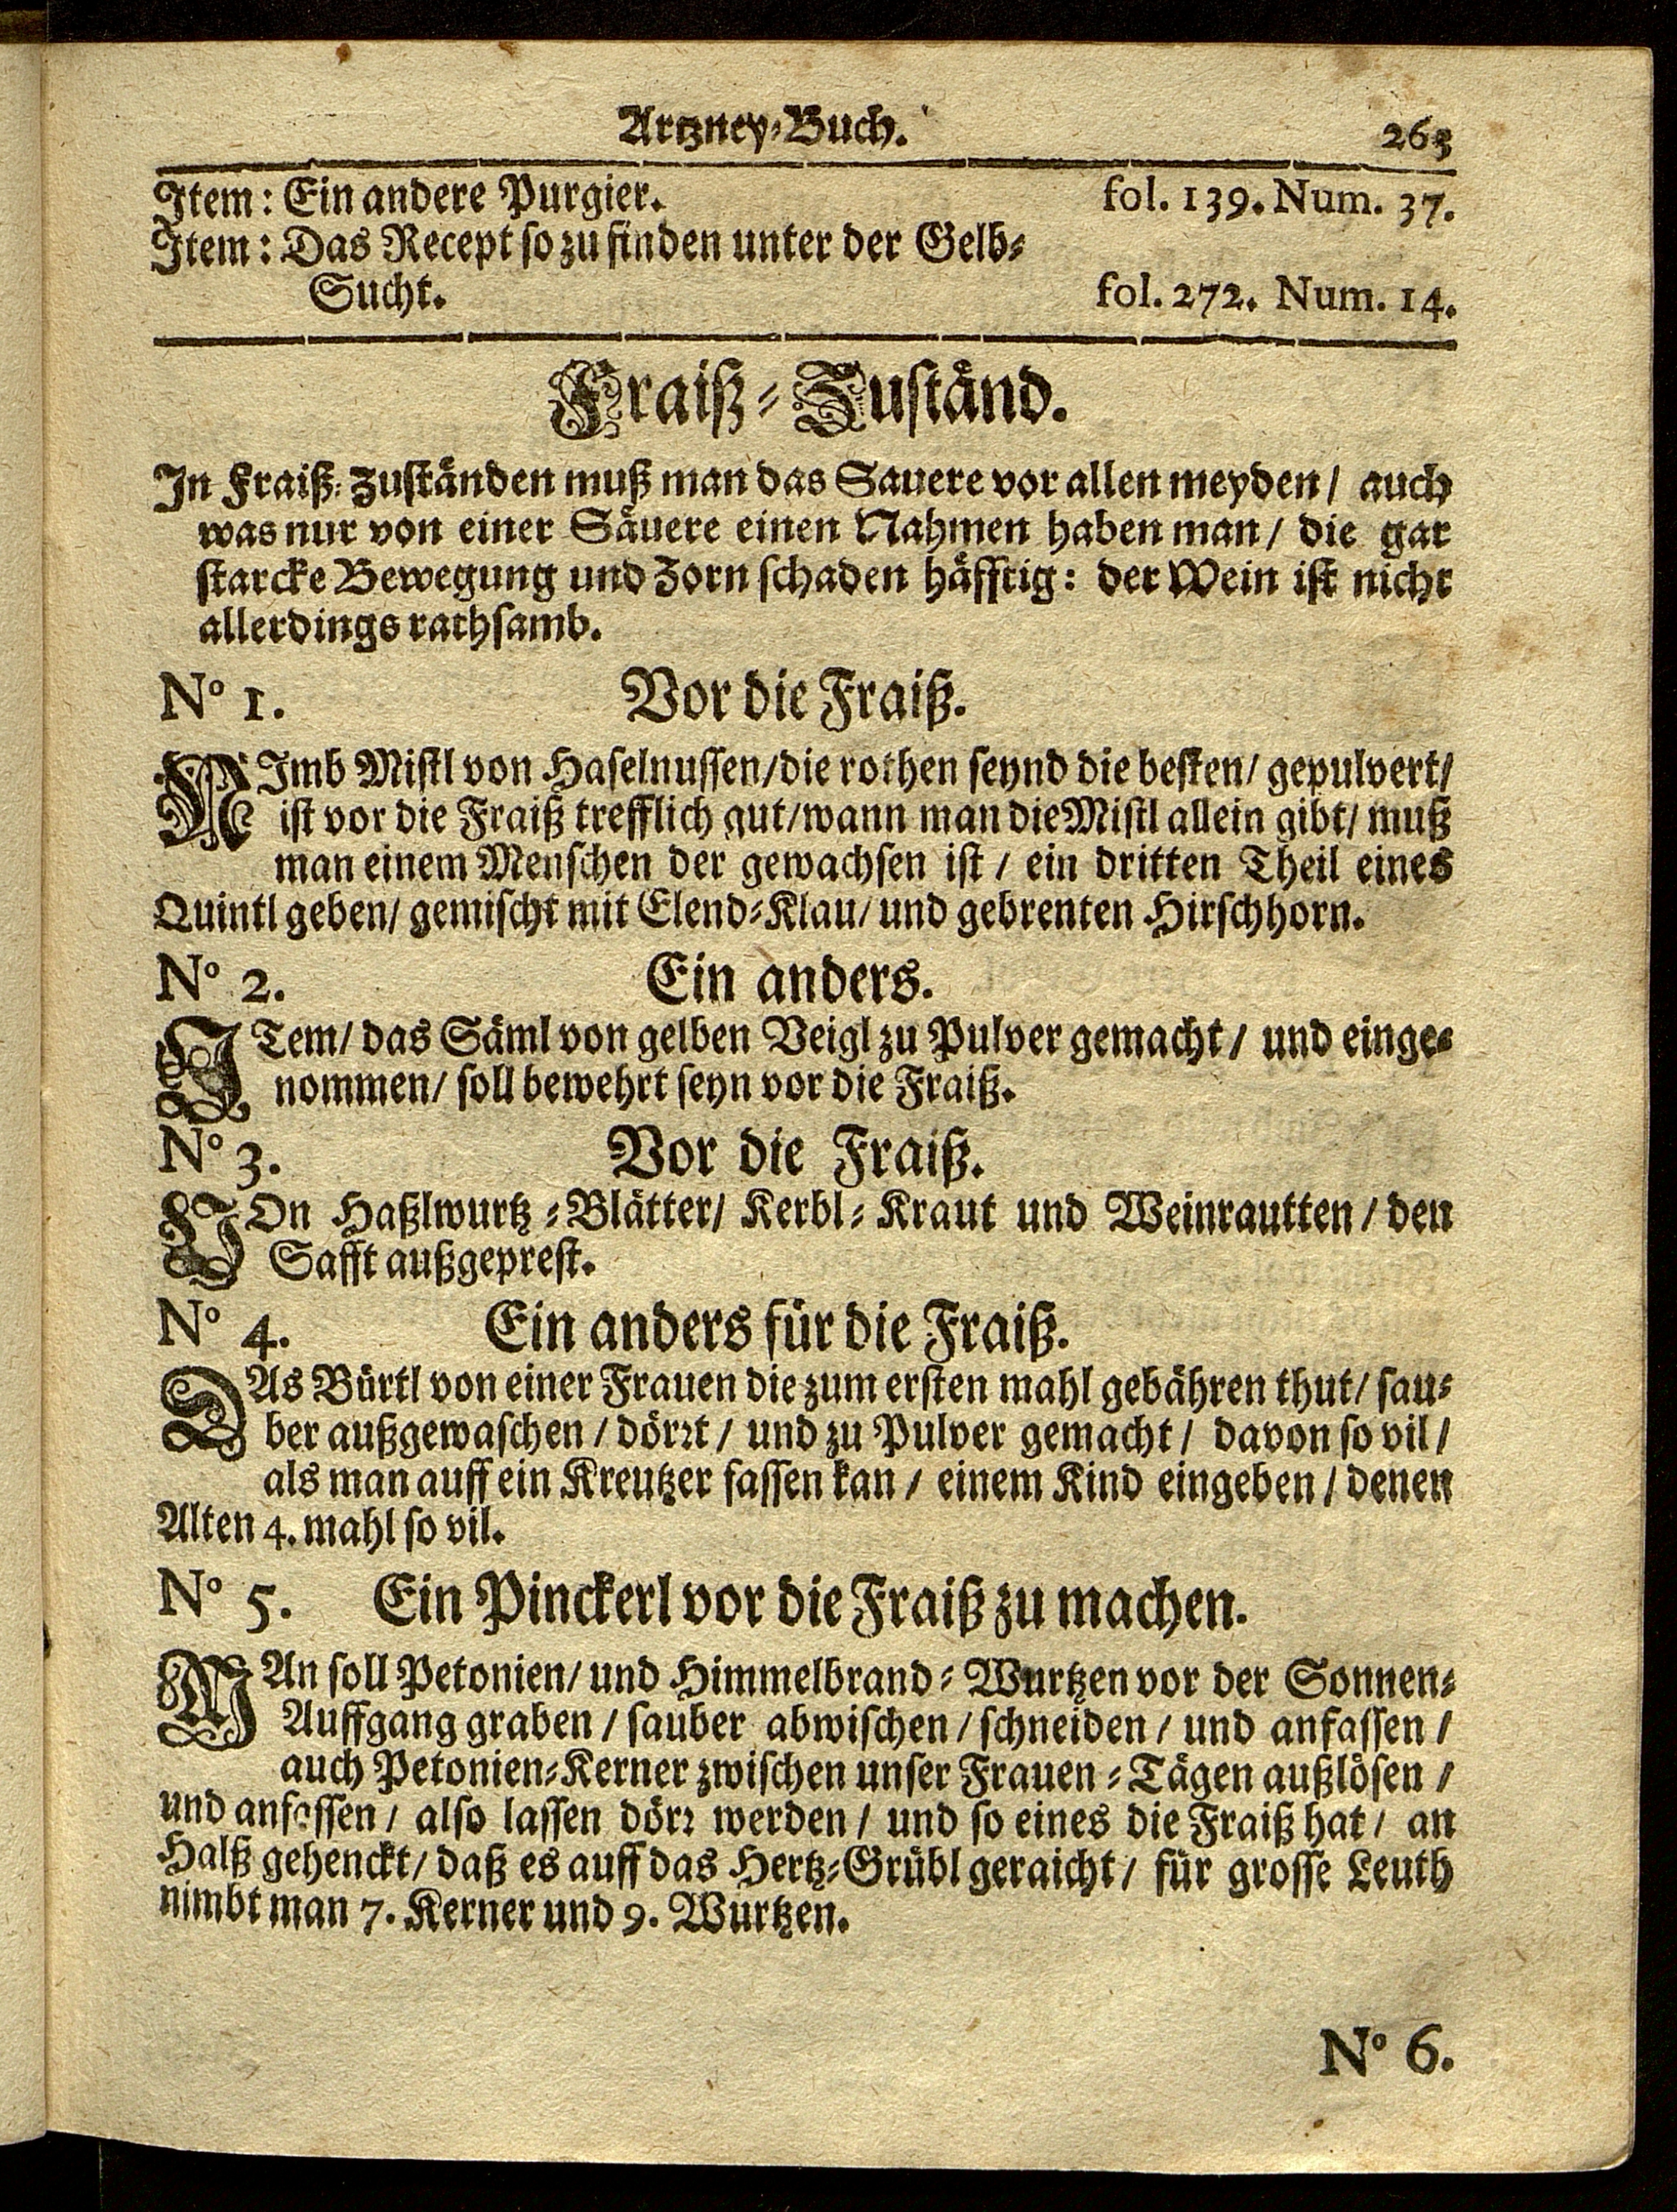 Artzney-Buch. 263
Item: Ein andere Purgier. fol. 139. Num. 37.
Item: Das Recept so zu finden unter der Gelb-
Sucht. fol. 272. Num. 14.
Fraiß-Zuständ.
In Fraiß-Zuständen muß man das Sauere vor allen meyden / auch
was nur von einer Säuere einen Nahmen haben man / die gar
starcke Bewegung und Zorn schaden häfftig: der Wein ist nicht
allerdings rathsamb.
N° 1. Vor die Fraiß.
NImb Mistl von Haselnussen/die rothen seynd die besten/ gepulvert/
ist vor die Fraiß trefflich gut/wann man die Mistl allein gibt/ muß
man einem Menschen der gewachsen ist / ein dritten Theil eines
Quintl geben/ gemischt mit Elend-Klau/ und gebrenten Hirschhorn.
N° 2. Ein anders.
ITem/ das Säml von gelben Veigl zu Pulver gemacht / und einge-
nommen/ soll bewehrt seyn vor die Fraiß.
N° 3. Vor die Fraiß.
VOn Haßlwurtz-Blätter/ Kerbl-Kraut und Weinrautten / den
Safft außgeprest.
N° 4. Ein anders für die Fraiß.
DAs Bürtl von einer Frauen die zum ersten mahl gebähren thut/ sau-
ber außgewaschen / dörrt / und zu Pulver gemacht / davon so vil /
als man auff ein Kreutzer fassen kan / einem Kind eingeben / denen
Alten 4. mahl so vil.
N° 5. Ein Pinckerl vor die Fraiß zu machen.
MAn soll Petonien/ und Himmelbrand-Wurtzen vor der Sonnen-
Auffgang graben / sauber abwischen / schneiden / und anfassen /
auch Petonien-Kerner zwischen unser Frauen-Tägen außlösen /
und anfassen / also lassen dörr werden / und so eines die Fraiß hat / an
Halß gehenckt / daß es auff das Hertz-Grübl geraicht / für grosse Leuth
nimbt man 7. Kerner und 9. Wurtzen.
N° 6.